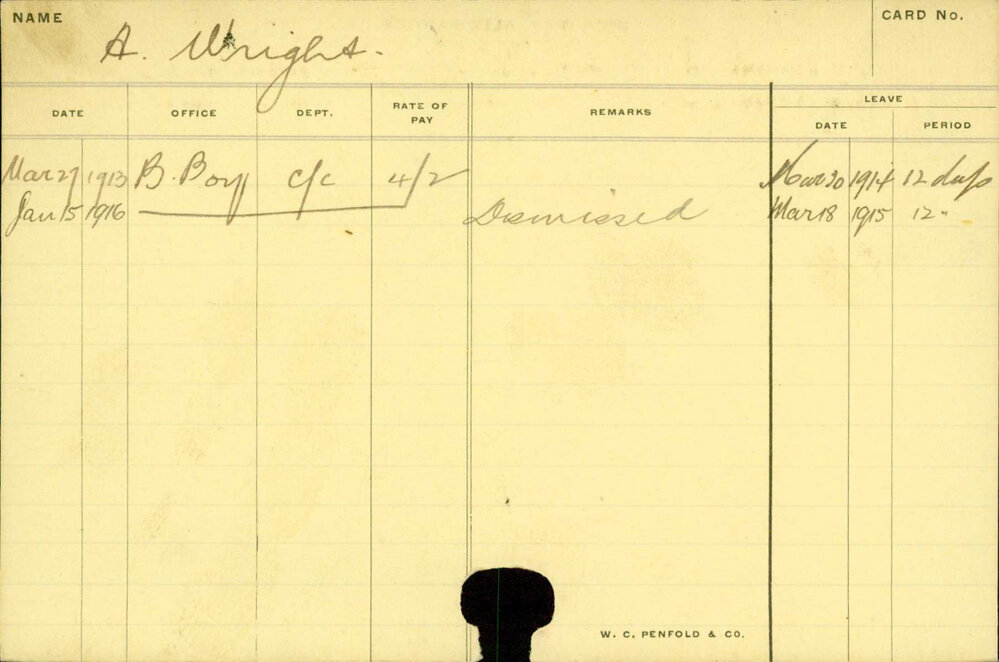 NAME
CARD No.
A. Wright.
DATE OFFICE DEPT. RATE OF PAY REMARKS LEAVE
DATE PERIOD
Mar 27 1913 B. Boy c/c 4/2 Mar 20 1914 12 days
Jan 15 1916 Dismissed Mar 18 1915 12 "
W. C. PENFOLD & CO.